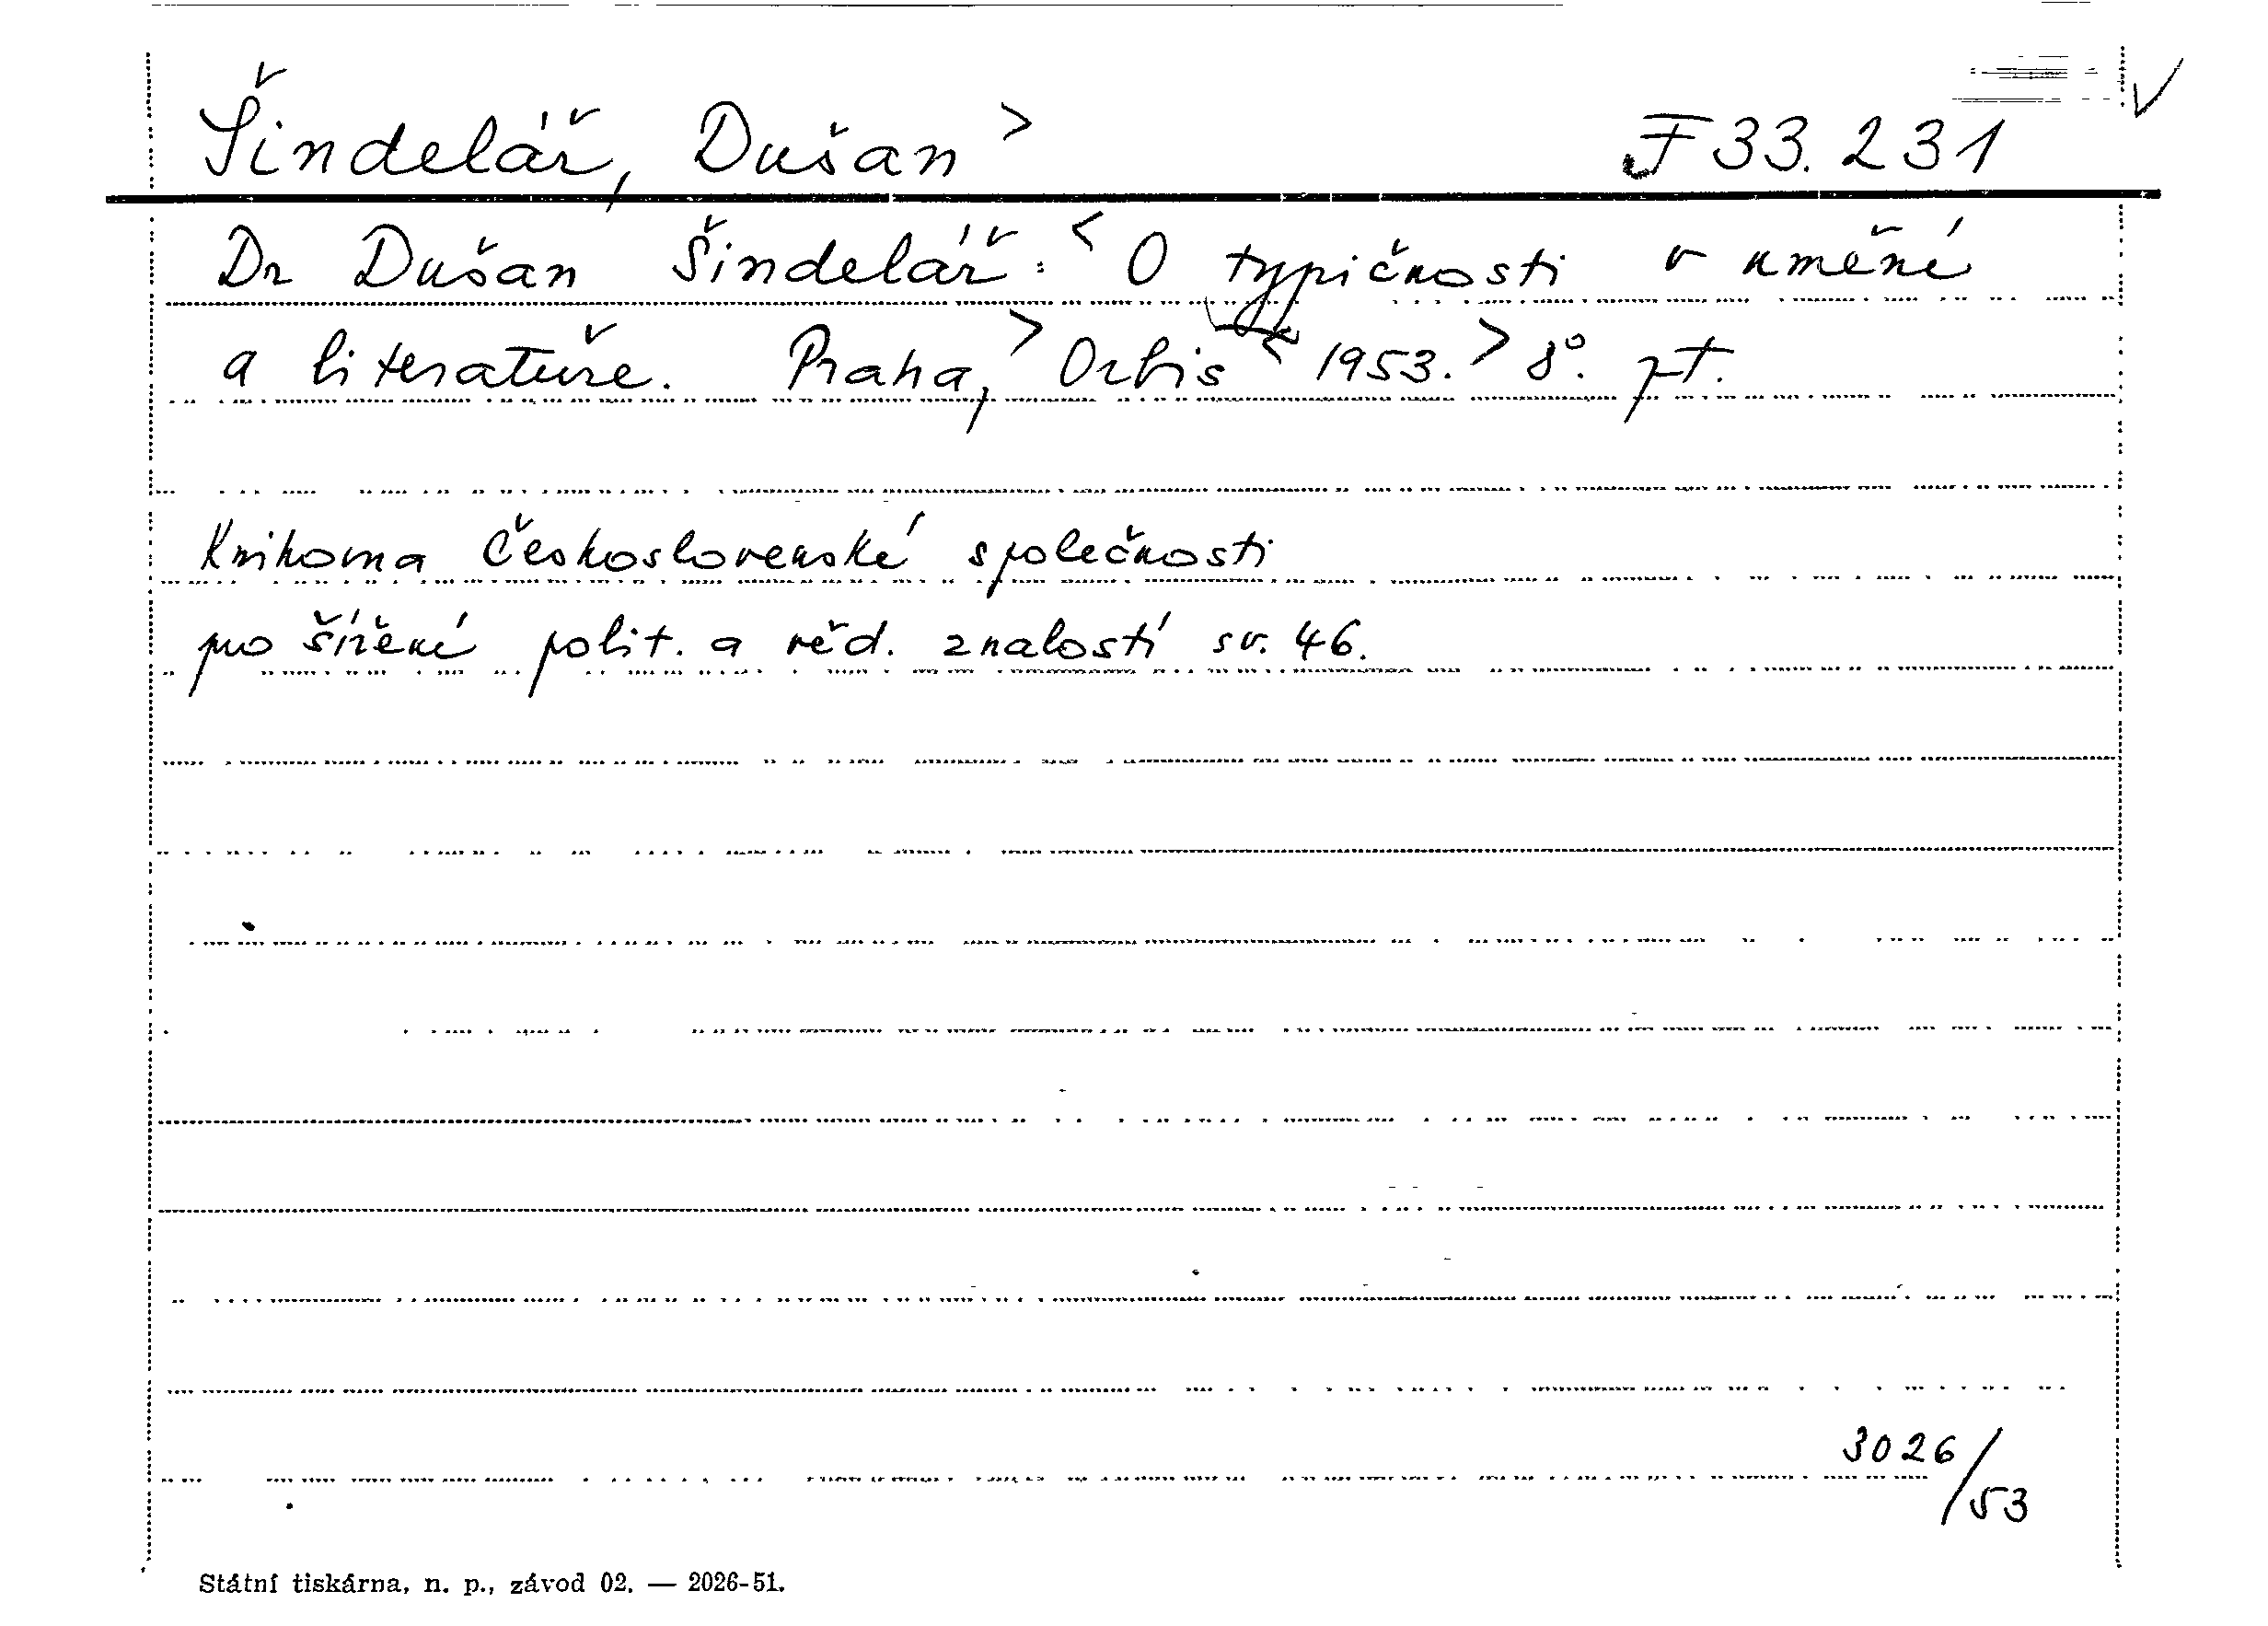 Šindelář, Dušan > F 33.231 √
Dr Dušan Šindelář: < O typičnosti v umění
a literatuře. Praha, > Orbis < 1953. > 8°. pt.
Knihovna Československé společnosti
pro šíření polit. a věd. znalostí sv. 46.
3026/53
Státní tiskárna, n. p., závod 02. — 2026-51.